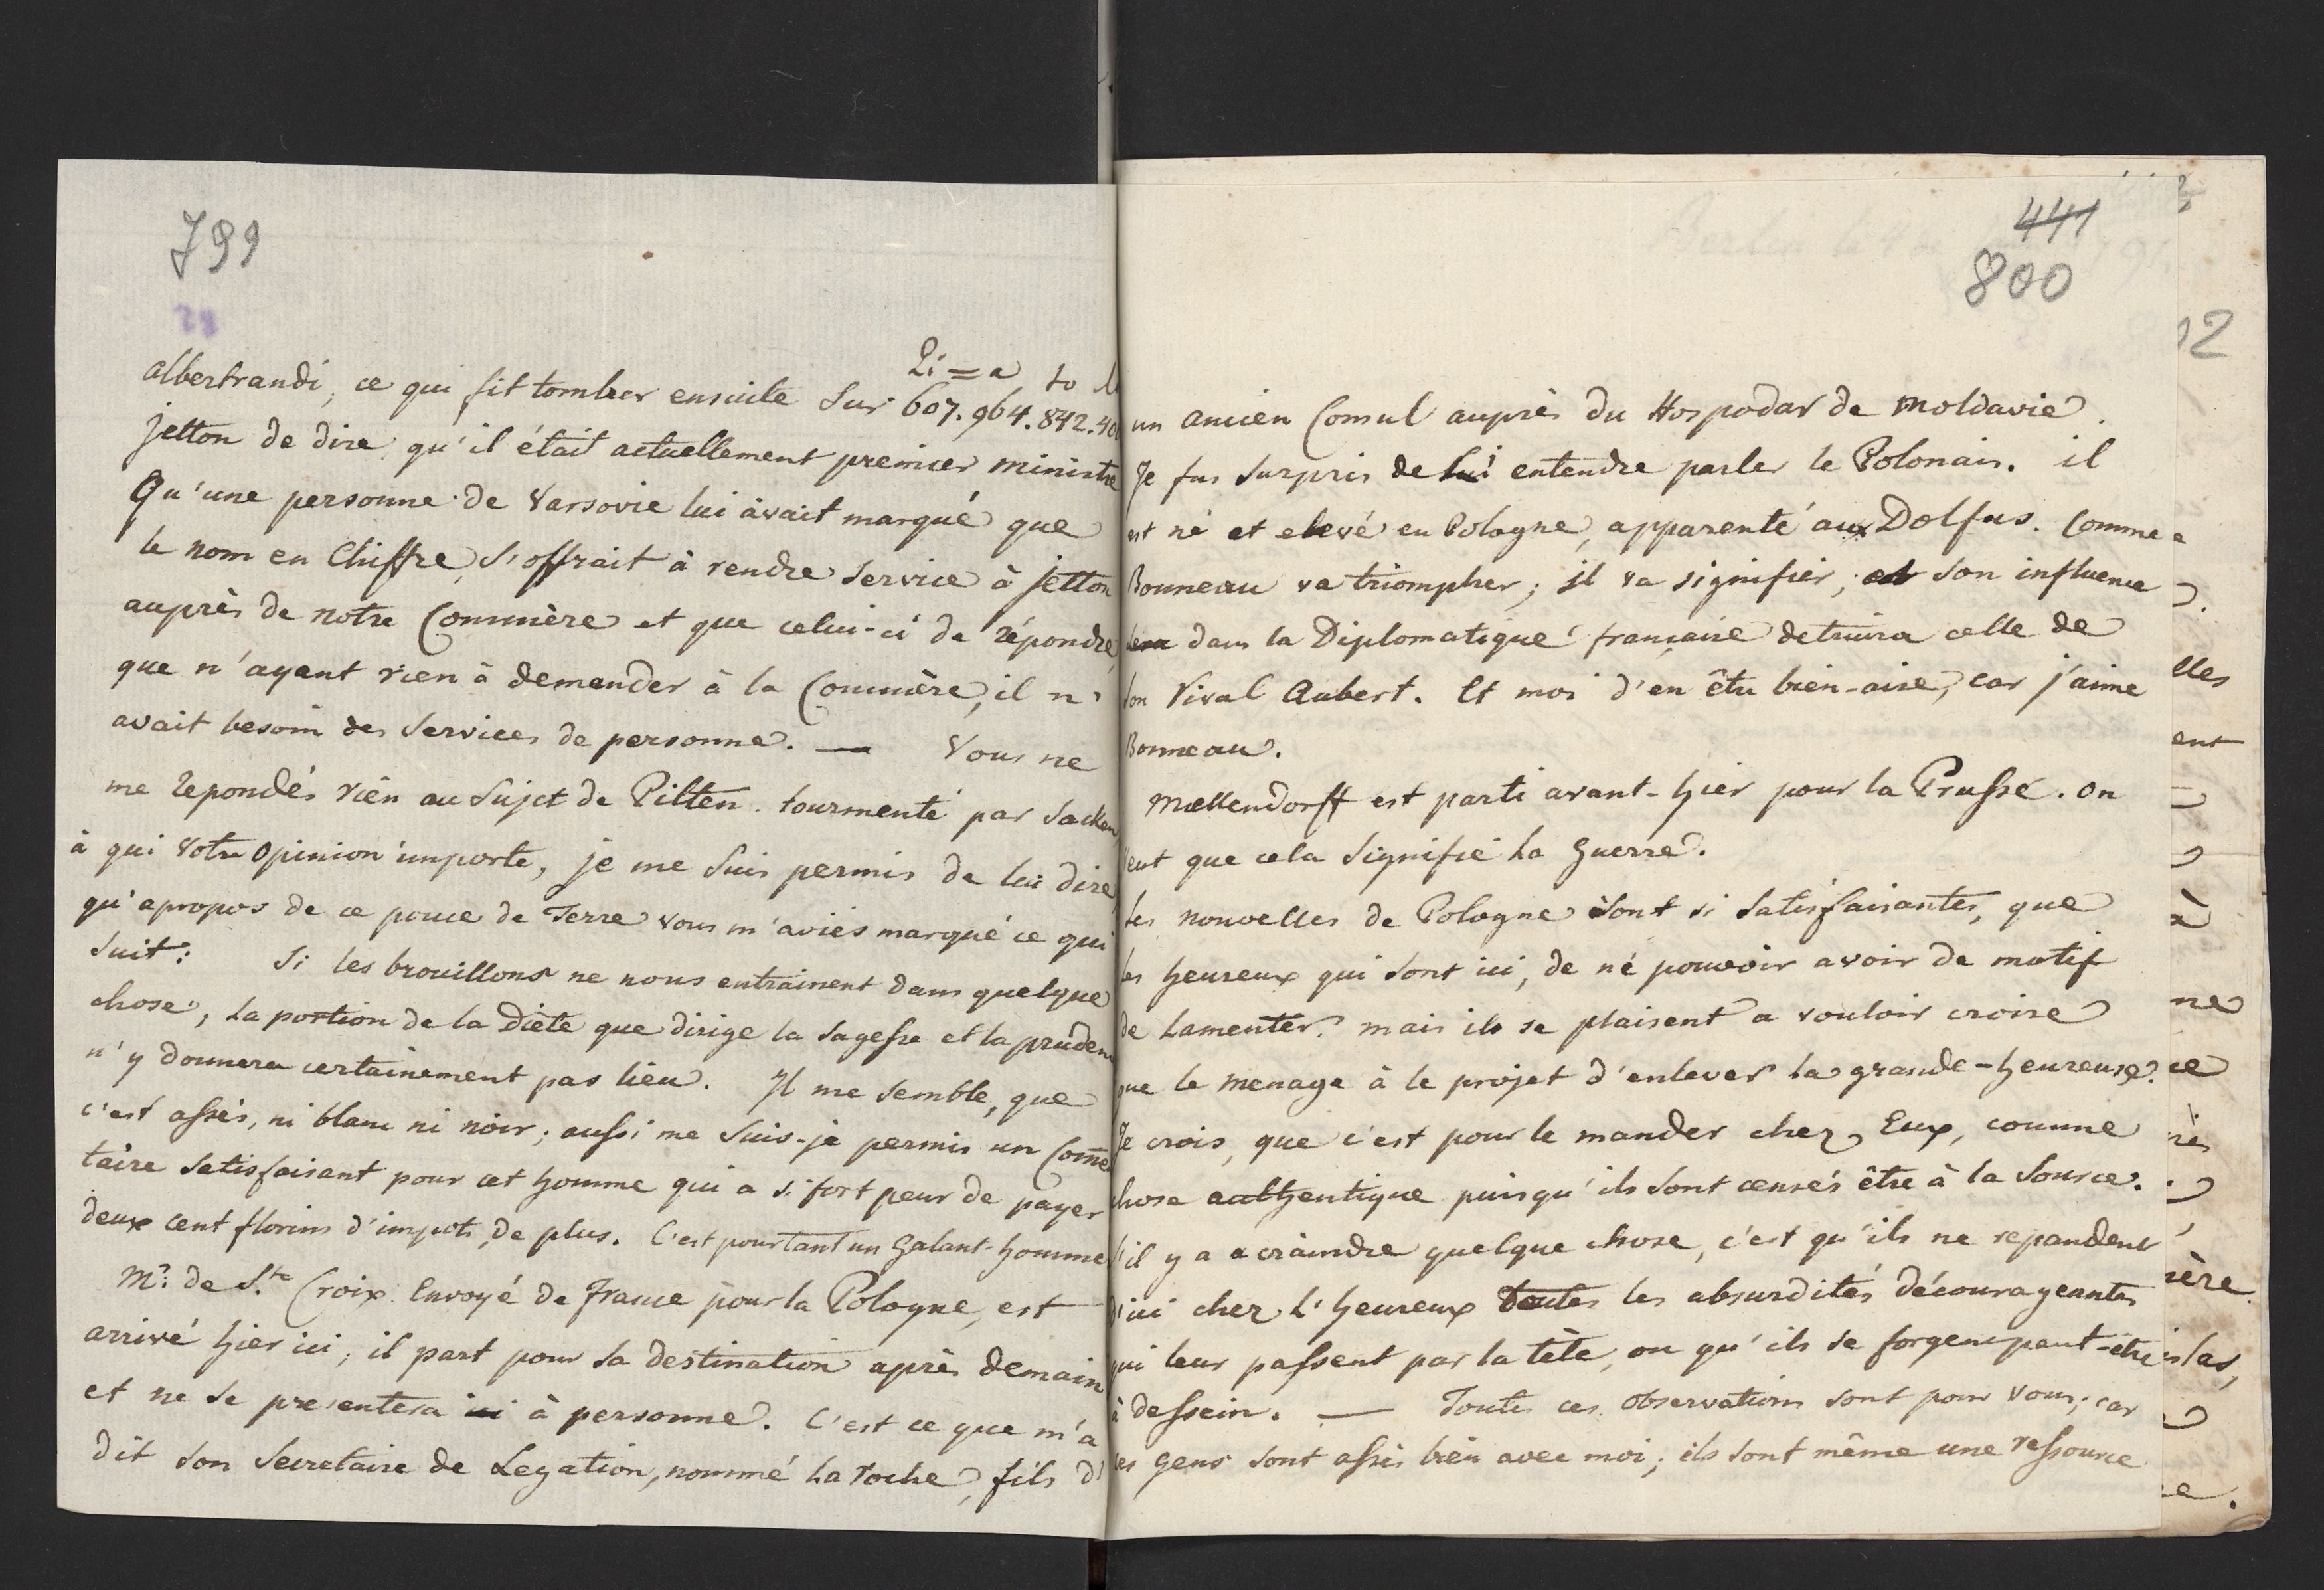 799
28
Pi = a to
albertrandi, ce qui fit tomber ensuite sur 607. 964. 842. 40
jetton de dire, qu'il était actuellement premier ministre
Qu'une personne de Varsovie lui avait marqué que
le nom en Chiffre, s'offrait à rendre service à jetton
auprès de notre Commère et que celui-ci de répondre,
que n'ayant rien à demander à la Commère, il n'
avait besoin des services de personne. — Vous ne
me repondés rien au sujet de Pilten. tourmenté par Sacken
à qui votre opinion importe, je me suis permis de lui dire
qu'apropos de ce pouce de Terre vous m'aviés marqué ce qui
suit: Si les brouillons ne nous entrainent dans quelque
chose, la portion de la Diète que dirige la sagesse et la prudence
n'y donnera certainement pas lieu. Il me semble, que
c'est assés, ni blanc ni noir; aussi me suis-je permis un Comen
taire satisfaisant pour cet homme qui a si fort peur de payer
deux cent florins d'impots de plus. C'est pourtant un Galant-homme
Mr: de Ste Croix Envoyé de France pour la Pologne, est
arrivé hier ici; il part pour sa destination après demain
et ne se presentera ici à personne. C'est ce que m'a
dit son Secretaire de Legation, nommé La roche, fils d'
441
800
un ancien Consul auprès du Hospodar de Moldavie.
Je fus surpris de lui entendre parler le Polonais. il
est né et elevé en Pologne, apparenté aux Dolfus. Comme
Bonneau va triompher; il va signifier; et son influence
dans la Diplomatique française detruira celle de
son rival Aubert. Et moi d'en être bien-aise, car j'aime
Bonneau.
Mœllendorff est parti avant-hier pour la Prusse. on
veut que cela signifie la Guerre.
Les nouvelles de Pologne sont si satisfaisantes, que
les heureux qui sont ici, de ne pouvoir avoir de motif
de Lamenter. mais ils se plaisent a vouloir croire
que le menage à le projet d'enlever la grande-heureuse.
Je crois, que c'est pour le mander chez Eux, comme
chose authentique puisqu'ils sont censés être à la Source.
S'il y a a craindre quelque chose, c'est qu'ils ne repandent
d'ici chez l'heureux toutes les absurdités décourageantes
qui leur passent par la tête, ou qu'ils se forgent peut-être
à dessein. — Toutes ces observations sont pour vous; car
ces gens sont assés bien avec moi; ils sont même une ressource